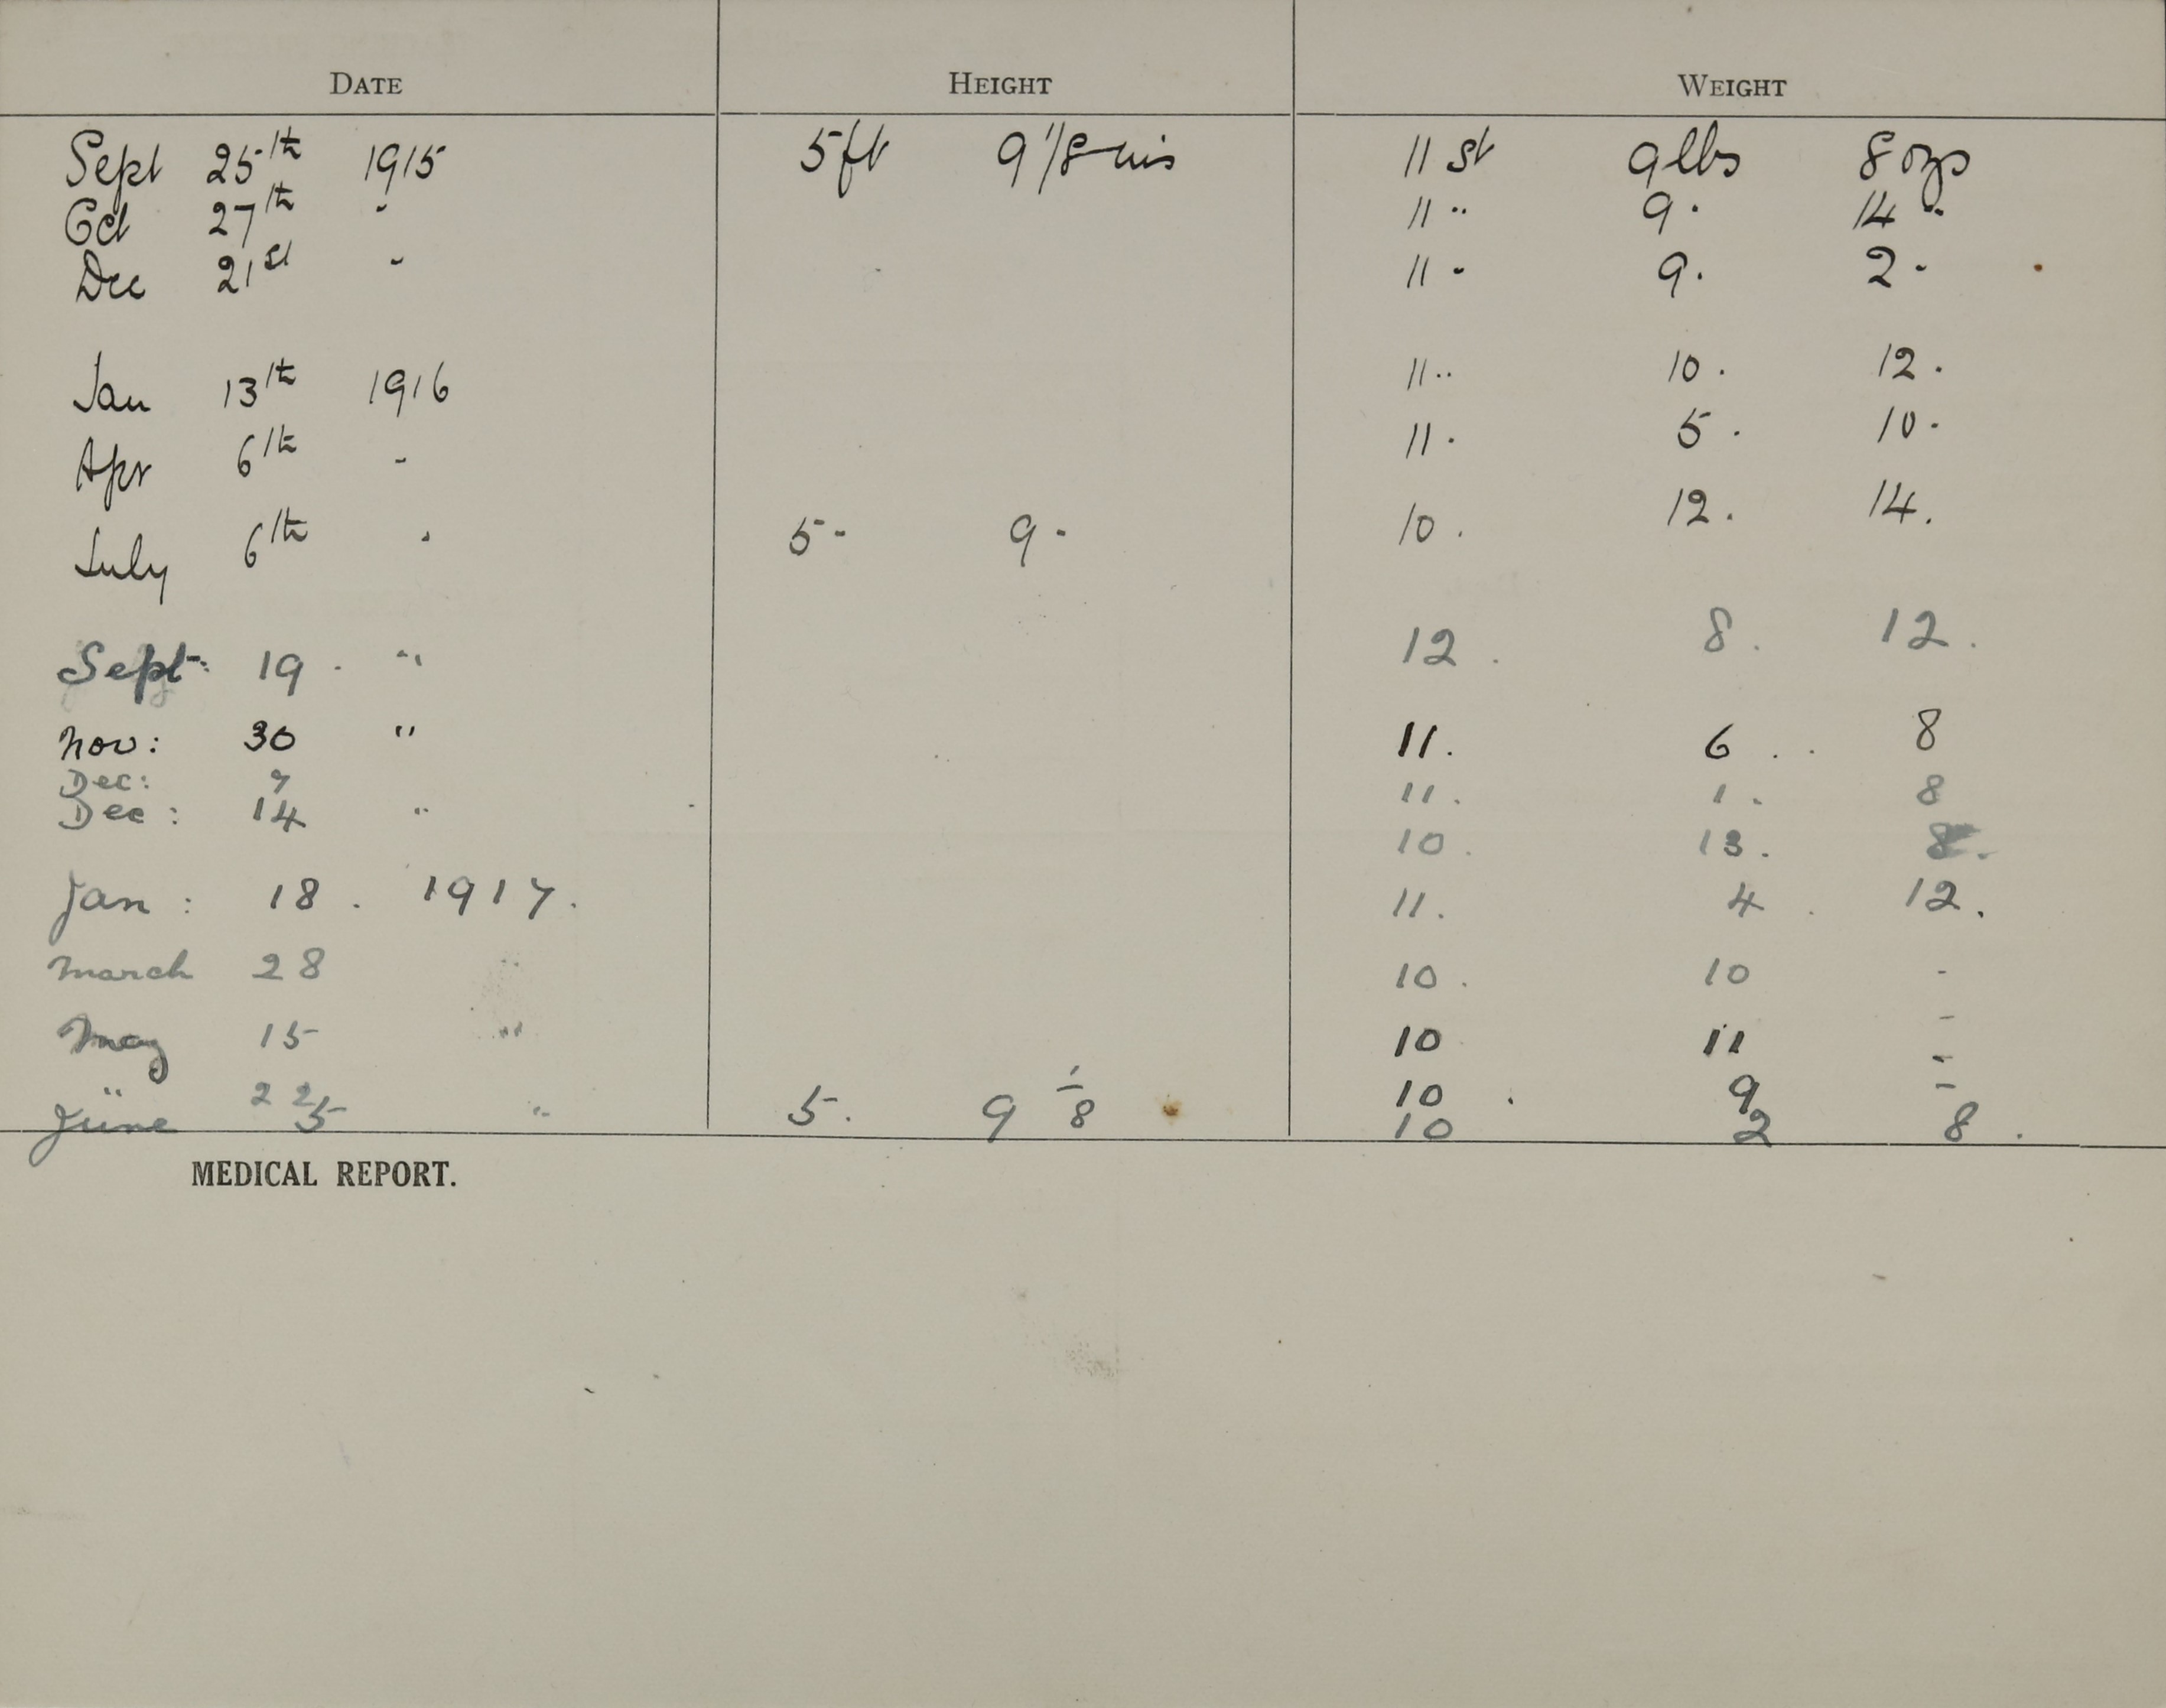 DATE HEIGHT WEIGHT
Sept 25th 1915 5ft 9 1/8 ins 11 st 9 lbs 8 ozs
Oct 27th " 11 " 9 . 14 "
Dec 21st " 11 - 9 . 2 -
Jan 13th 1916 11 .. 10 . 12 .
Apr 6th " 11 . 5 . 10 .
July 6th " 5 - 9 - 10 . 12 . 14 .
Sept: 19 . " 12 . 8 . 12 .
Nov: 30 " 11 . 6 . . 8
Dec: 7 11 . 1 . 8
Dec: 14 " 10 . 13 . 8 .
Jan: 18 . 1917 . 11 . 4 . 12 .
March 28 " 10 . 10 -
May 15 " 10 11 -
" 22 10 . 9 -
June 5 " 5 . 9 1/8 10 2 8 .
MEDICAL REPORT.